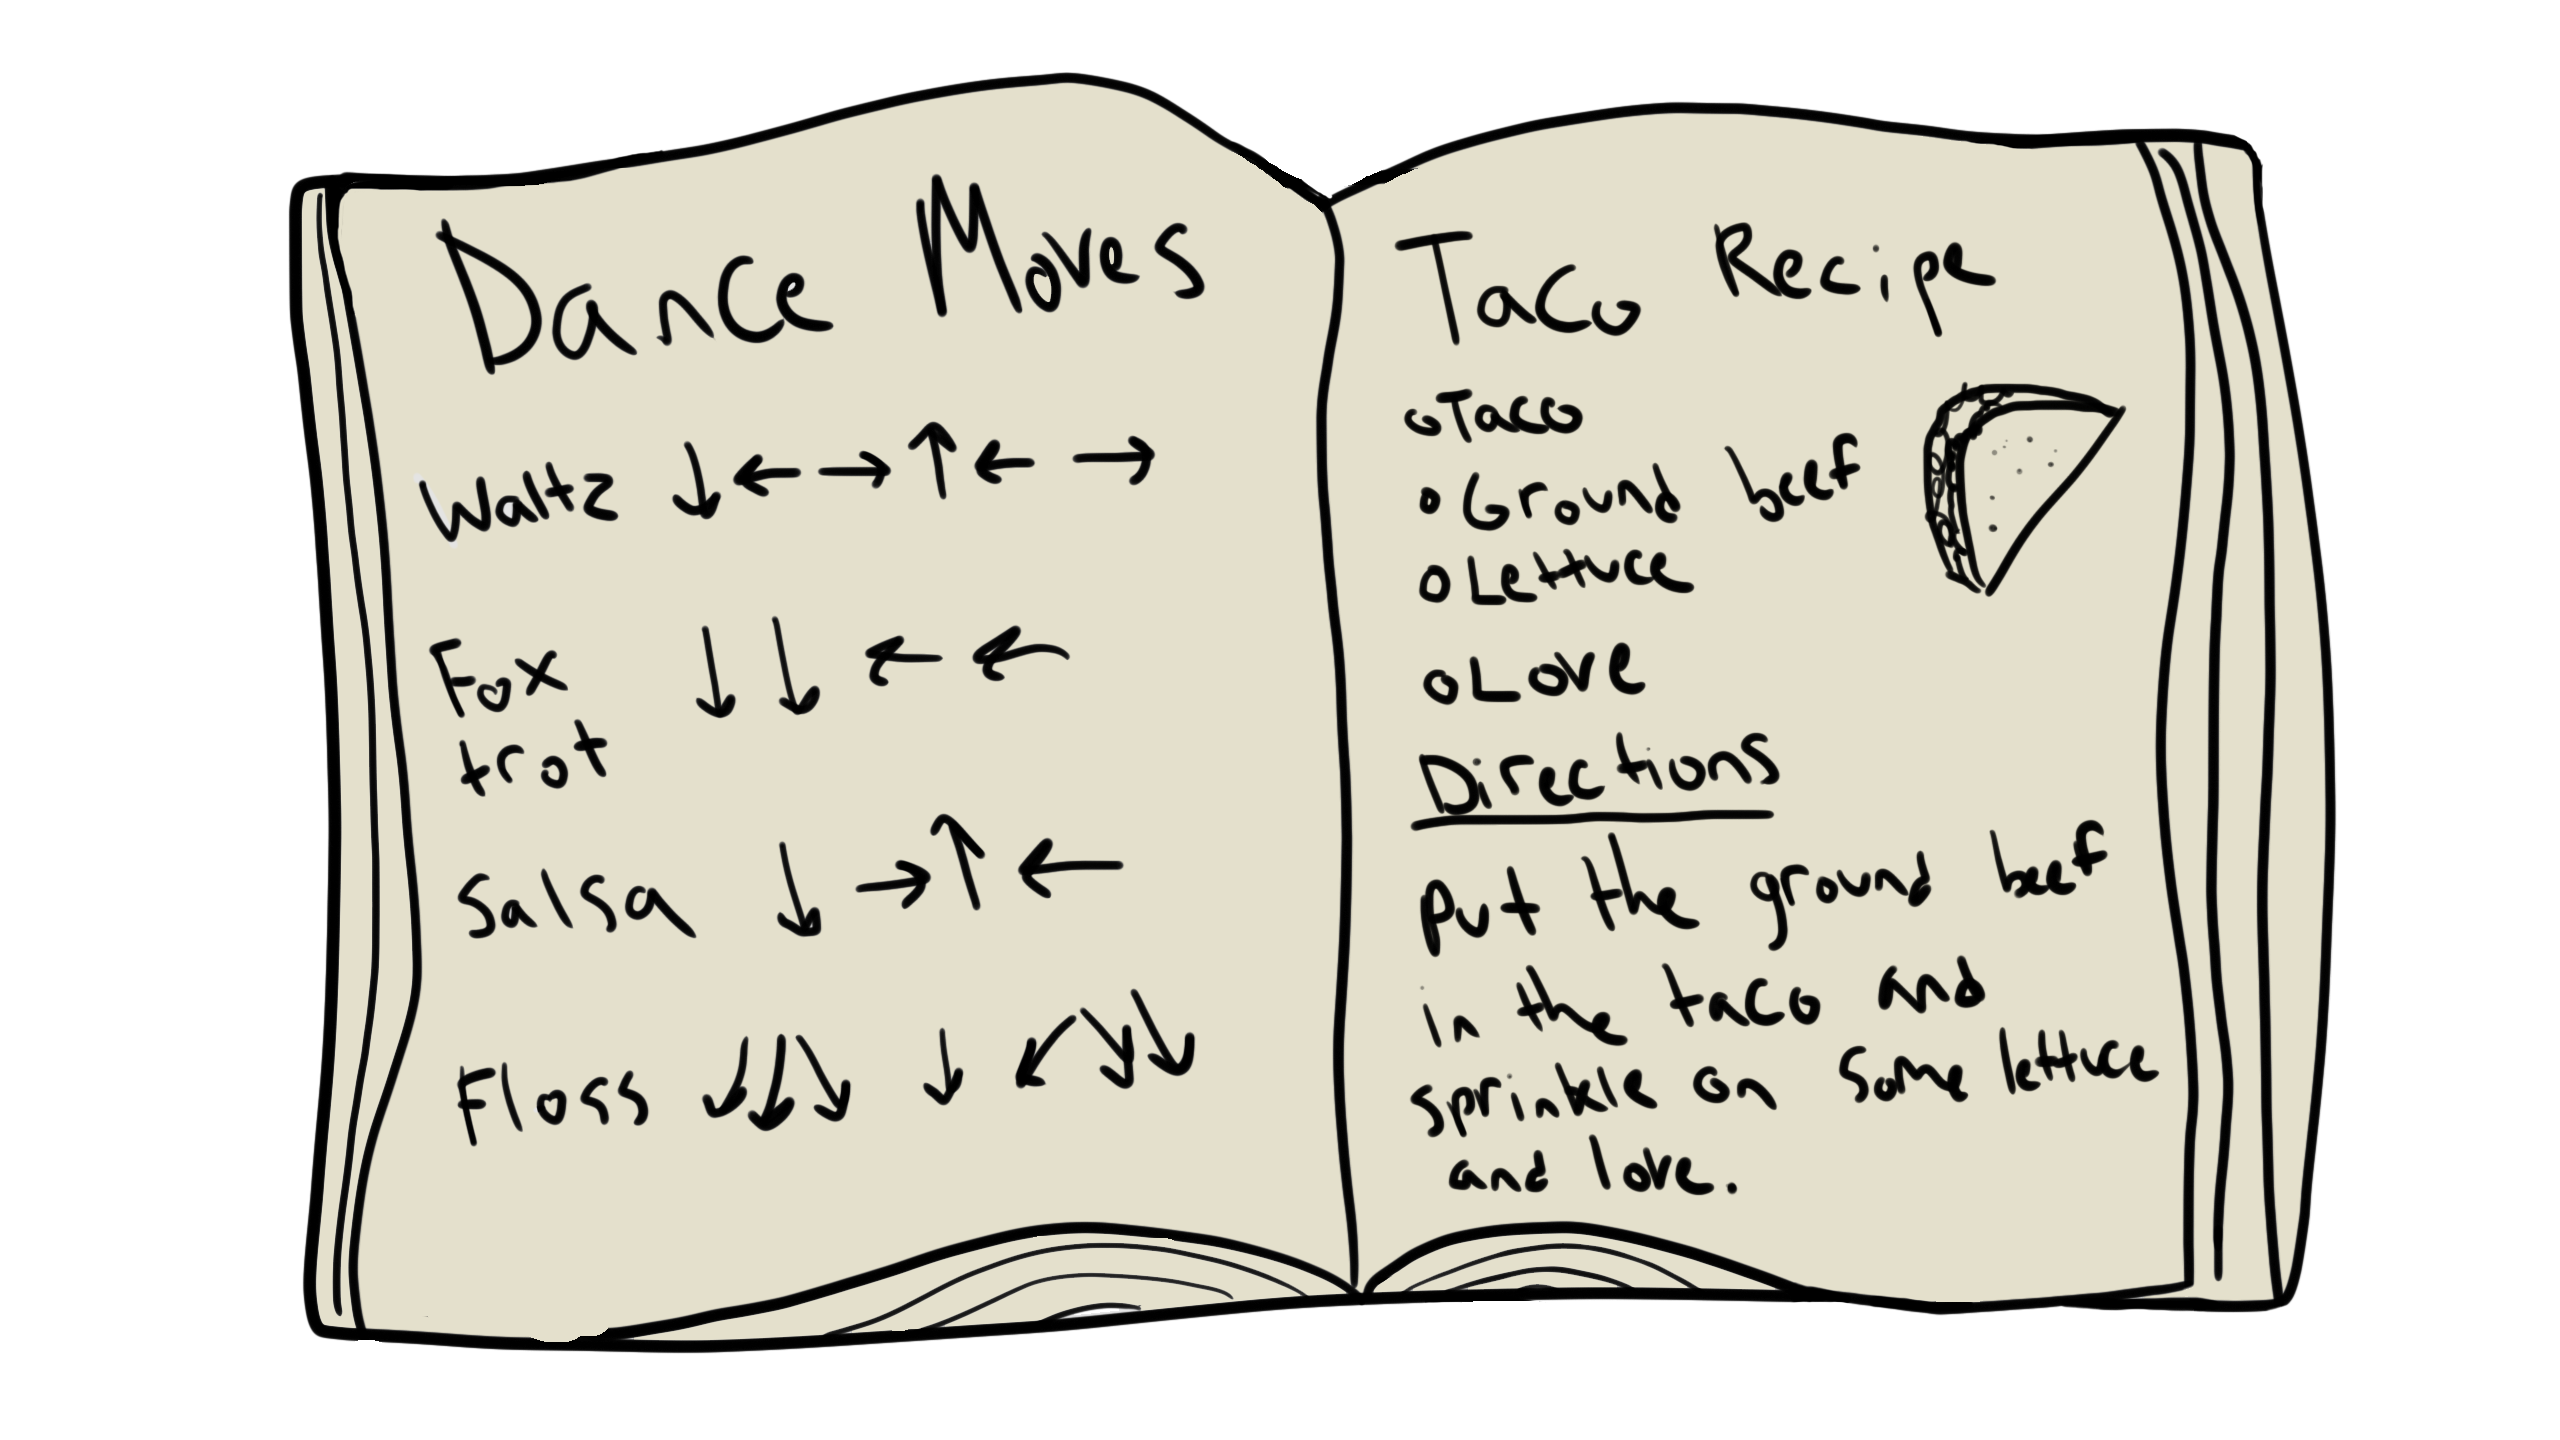 Dance Moves
Waltz ↓ ← → ↑ ← →
Fox ↓ ↓ ← ←
trot
Salsa ↓ → ↑ ←
Floss ↙ ↓ ↘ ↓ ↙ ↘ ↘
Taco Recipe
○ Taco
○ Ground beef
○ Lettuce
○ Love
Directions
Put the ground beef
in the taco and
sprinkle on some lettuce
and love.